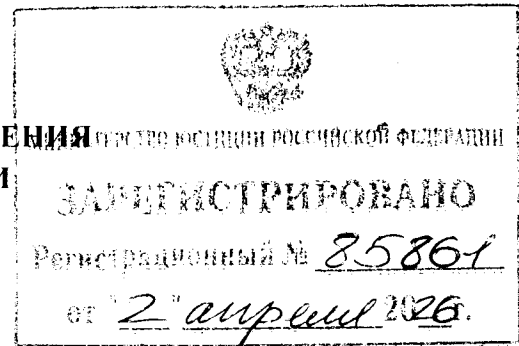 ЕНИЯ
МИНИСТЕРСТВО ЮСТИЦИИ РОССИЙСКОЙ ФЕДЕРАЦИИ
И
ЗАРЕГИСТРИРОВАНО
Регистрационный № 85861
от "2" апреля 2026г.